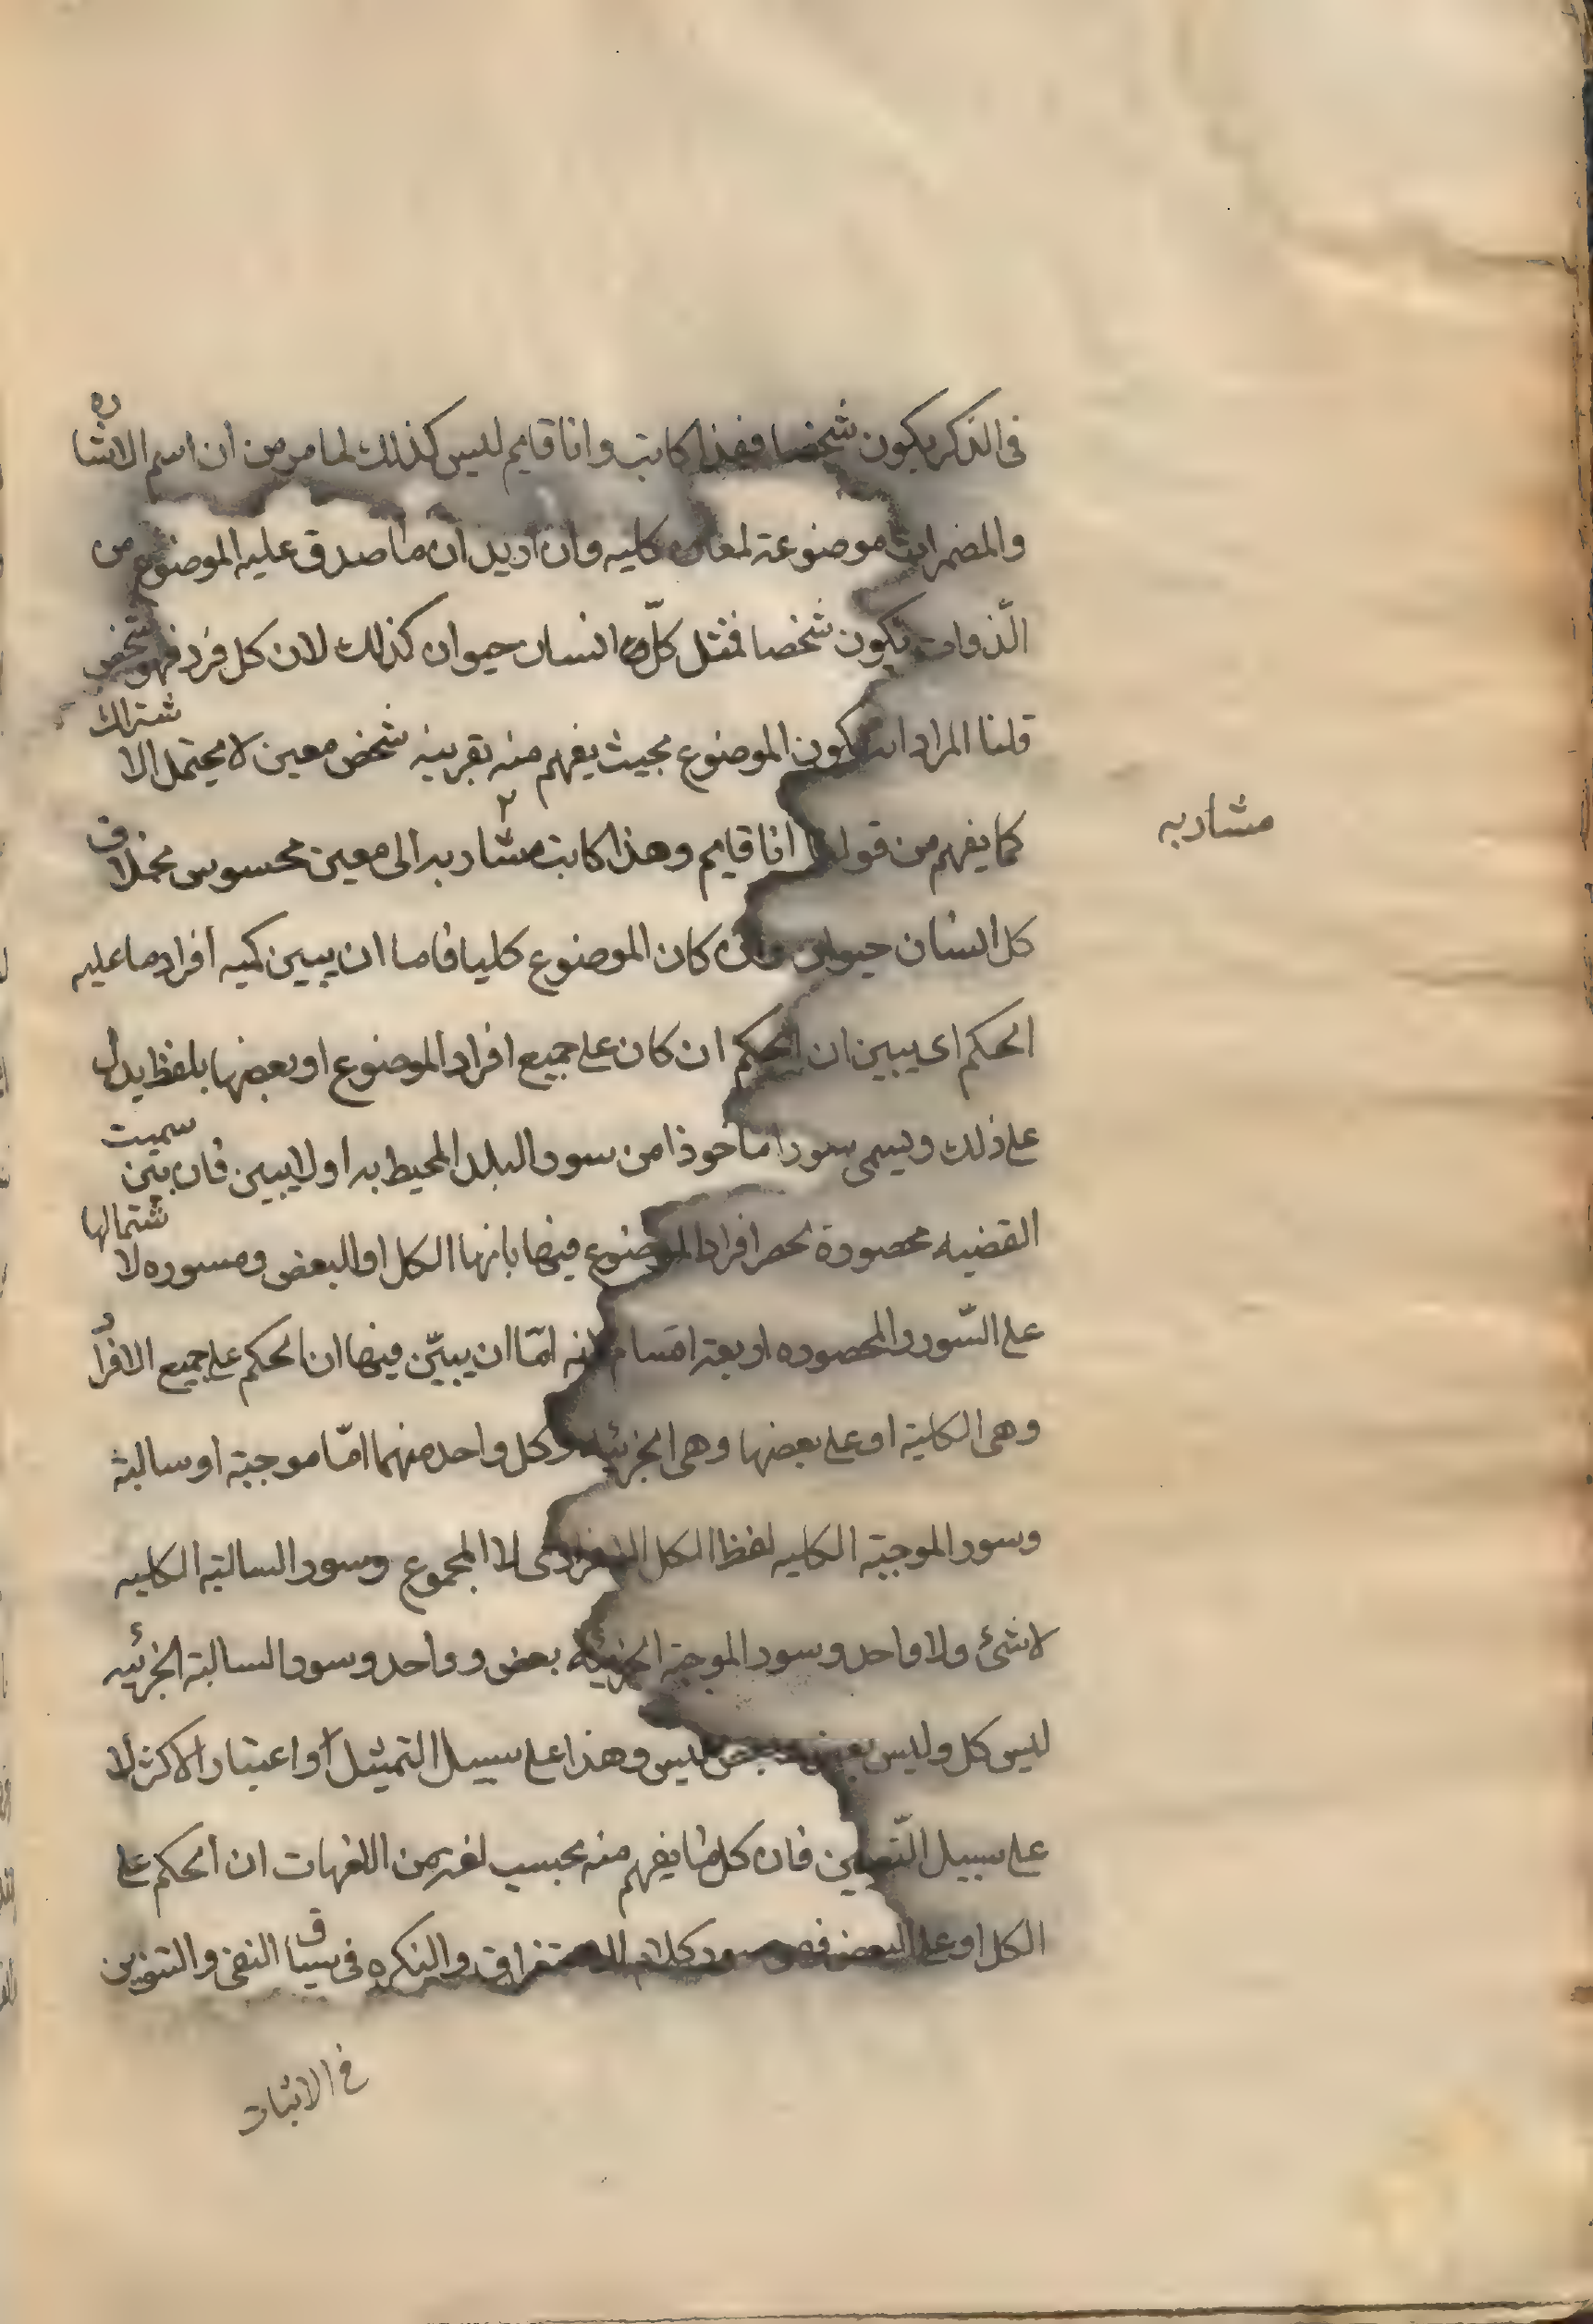 في الذكر يكون شخصا فهذا كاتب وانا قايم ليس كذلك لما مر من ان اسم الاشاره
والمضمرات موضوعة لمعان كليه وان اريد ان ما صدق عليه الموضوع من
الذوات يكون شخصا فمثل كل انسان حيوان كذلك لان كل فرد فهو شخص
قلنا المراد ان يكون الموضوع بحيث يفهم منه بقرينه شخص معين لا يحتمل الاشتراك
كما يفهم من قولنا انا قايم وهذا كاتب مشار به الى معين محسوس بخلاف
مشار به
كل انسان حيوان وان كان الموضوع كليا فاما ان يبين كميه افراد ما عليه
الحكم اى يبين ان الحكم ان كان على جميع افراد الموضوع او بعضها بلفظ يدل
على ذلك ويسمى سورا ماخوذا من سور البلد المحيط به اولا يبين فان بين سميت
القضيه محصورة لحصر افراد الموضوع فيها بانها الكل او البعض ومسوره لاشتمالها
على السّور والمحصوره اربعة اقسام لانه امّا ان يبيّن فيها ان الحكم على جميع الافراد
وهى الكلية او على بعضها وهى الجزئية وكل واحد منهما امّا موجبة او سالبة
وسور الموجبة الكليه لفظ الكل الافرادى لا المجموع وسور السالبة الكليه
لا شئ ولا واحد وسور الموجبة الجزئية بعض وواحد وسور السالبة الجزئيه
ليس كل وليس بعض وبعض ليس وهذا على سبيل التمثيل او اعتبار الاكثر لا
على سبيل التّعيين فان كل ما يفهم منه بحسب لغة من اللغهات ان الحكم على
الكل او على البعض فهو سور كلام الاستغراق والنكره فى سياق النفى والتنوين
فى الاثبات